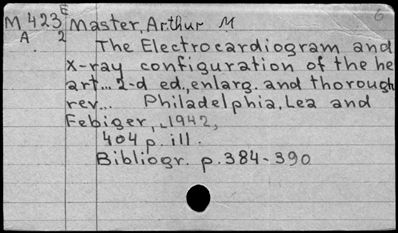 6
M 423 E Master, Arthur M
A. 2 The Electrocardiogram and
x-ray configuration of the he
art... 2-d ed., enlarg. and thorough
rev... Philadelphia, Lea and
Febiger, 1942,
404 p. ill.
Bibliogr. p. 384-390